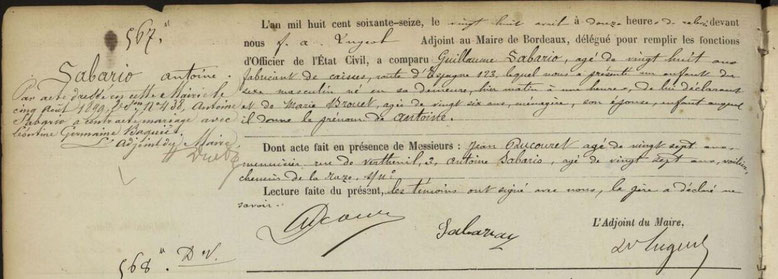 567.
Sabario antoine.
Par acte dressé en cette Mairie le
cinq Août 1899, N° 488, Antoine
Sabario a contracté mariage avec
Léontine Germaine
L'Adjoint du Maire
L'an mil huit cent soixante-seize, le vingt huit avril à douze heures de relevé devant
nous f. a. Adjoint au Maire de Bordeaux, délégué pour remplir les fonctions
d'Officier de l'État Civil, a comparu Guillaume Sabario, agé de vingt huit ans
fabricant de caisses, route d'Espagne 123, lequel nous a présenté un enfant du
sexe masculin né en sa demeure, hier matin à une heure, de lui déclarant
et de Marie agée de vingt six ans, ménagère, son épouse, enfant auquel
il donne le prénom de antoine.
Dont acte fait en présence de Messieurs : Jean Ducouret agé de vingt sept ans,
menuisier, rue de 3, Antoine Sabario, agé de vingt sept ans,
chemin de la
Lecture faite du présent, les témoins ont signé avec nous, le père a déclaré ne
savoir.
L'Adjoint du Maire,
568. D.V.